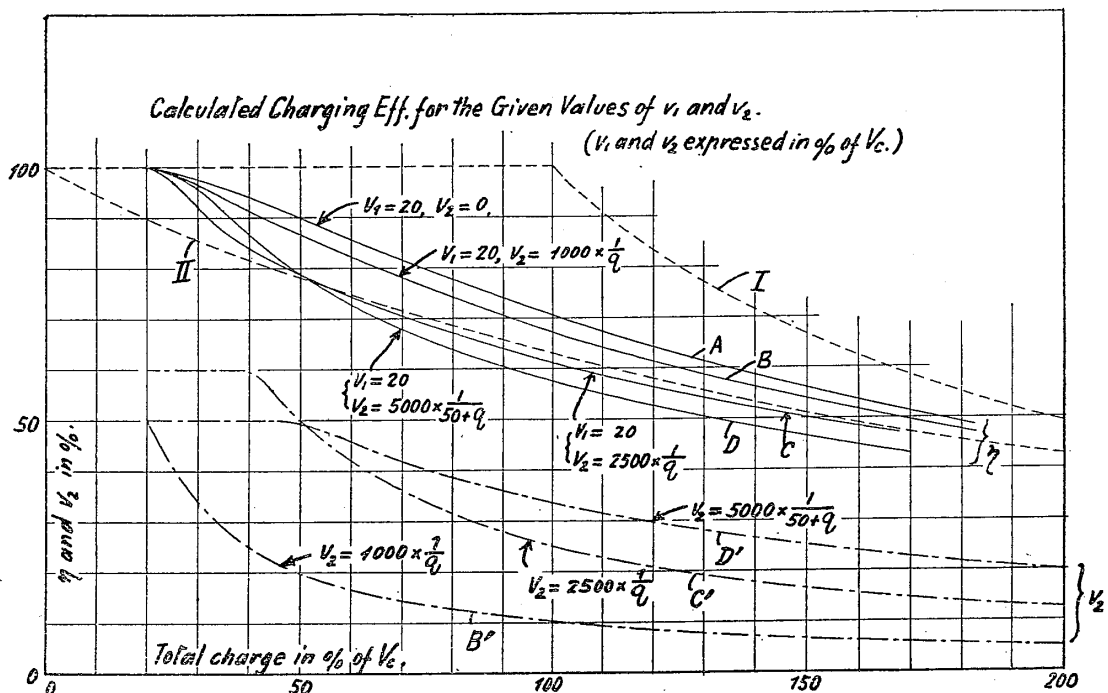 Calculated Charging Eff. for the Given Values of v₁ and v₂.
(v₁ and v₂ expressed in % of Vc.)
100
V₁=20, V₂=0.
V₁=20, V₂=1000×1/q
II
I
A
B
V₁=20
V₂=5000×1/50+q
V₁=20
V₂=2500×1/q
D
C
η
50
η and V₂ in %.
V₂=5000×1/50+q
D'
V₂=1000×1/q
V₂=2500×1/q
C'
B'
V₂
Total charge in % of Vc.
0
0
50
100
150
200